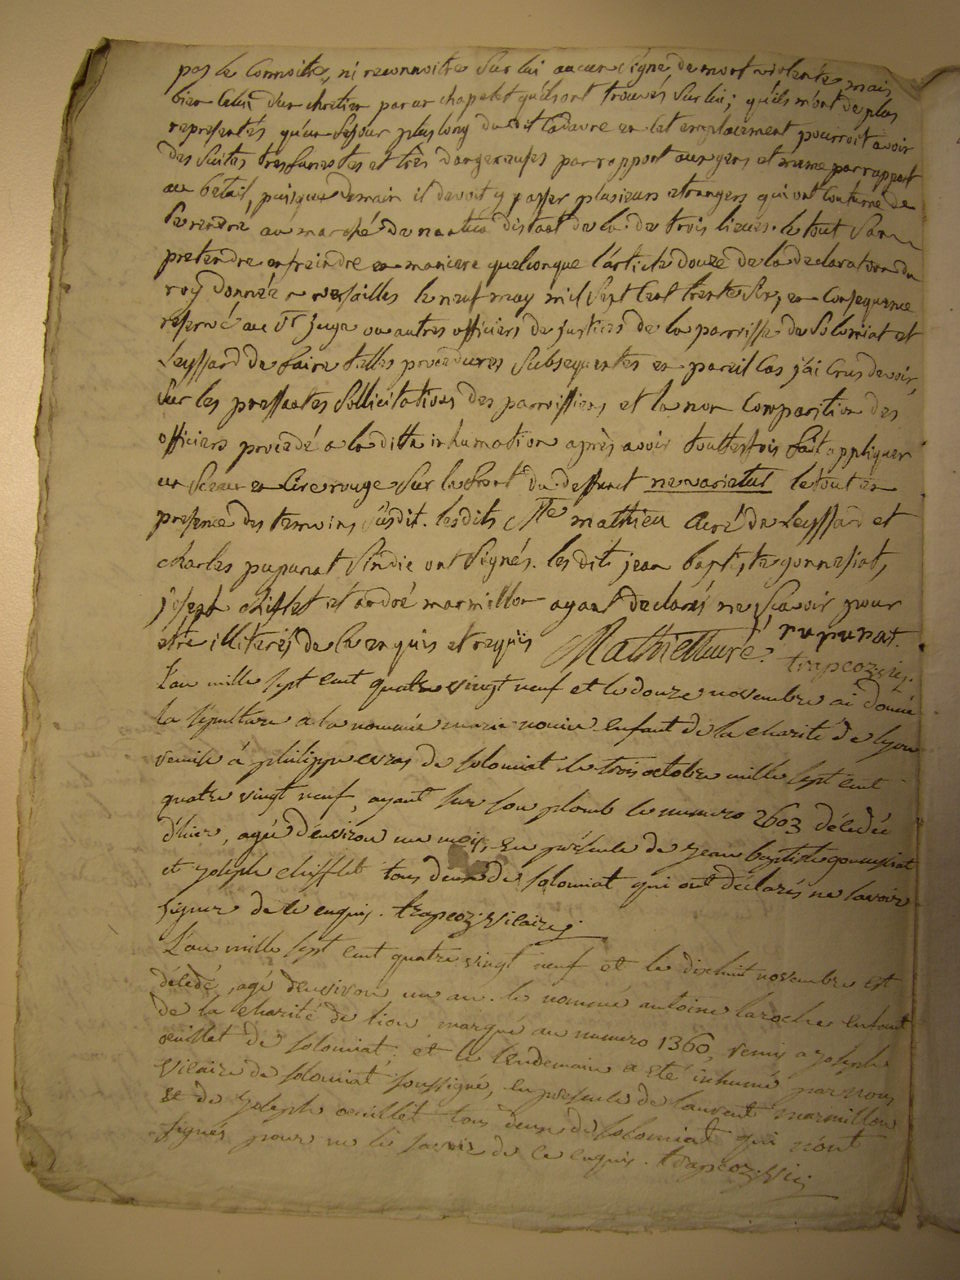 pas le connoitre, ni reconnoitre sur lui aucun signe de mort violente, mais
bien celui d'un chretien par un chapelet qu'ils ont trouvés sur lui; qu'ils m'ont de plus
représentés qu'un séjour plus long du dit cadavre en cet emplacement pourroit avoir
des suites tres funestes et très dangereuses par rapport aux gens et même par rapport
au bétail, puisque demain il devoit y passer plusieurs etrangers qui ont coutume de
se rendre au marché de nantua distant de la de trois lieues. le tout sans
pretendre enfreindre en maniere quelconque l'article douze de la declaration du
roy donnée a versailles le neuf may mil sept cent trente six, en consequence
reservé au Sr juge ou autres officiers de justices de la parroisse de Solomiat et
Leyssard de faire telles procedures subsequentes en pareil cas j'ai crus devoir,
sur les pressantes sollicitations des parroissiens et la non comparition des
officiers procédé a la ditte inhumation après avoir touttesfois fait appliquer
un sceau en cire rouge sur le front du deffunct ne varietur le tout en
presence des temoins susdit. lesdits Mre mathieu curé de Leyssard et
charles pupunat sindic ont signés. les dits jean baptiste gonnessiat,
joseph chifflet et andré marmillon ayant declarés ne sçavoir pour
etre illiterés de ce enquis et requis Mathieu curé. pupunat.
trapcozvic.
L'an mille sept cent quatre vingt neuf et le douze novembre ai donné
la sépulture a la nommée marie enfant de la charité de lyon
remise à philippe evras de solomiat le trois octobre mille sept cent
quatre vingt neuf, ayant sur son plomb le numero 2603 décédée
d'hier, agée d'environ un mois. en présence de jean baptiste gonnessiat
et joseph chifflet tous deux de solomiat qui ont déclarés ne savoir
signer de ce enquis. trapcoz vicaire
L'an mille sept cent quatre vingt neuf et le dixhuit novembre est
décédé, agé d'environ un an le nommé antoine laroche enfant
de la charité de lion marqué au numero 1360, remis a joseph
oeuillet de solomiat; et le lendemain a été inhumé par nous
vicaire de solomiat soussigné, en présence de laurent marmillon
et de joseph oeuillet tous deux de solomiat qui n'ont
signés pour ne le savoir de ce enquis. trapcoz vic